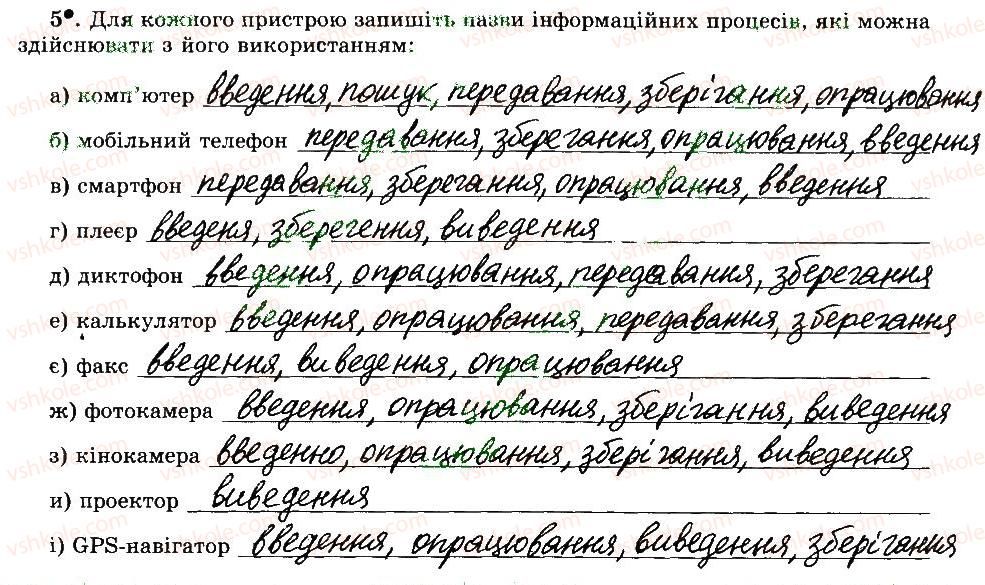 5•. Для кожного пристрою запишіть назви інформаційних процесів, які можна
здійснювати з його використанням:
а) комп’ютер введення, пошук, передавання, зберігання, опрацювання
б) мобільний телефон передавання, зберегання, опрацювання, введення
в) смартфон передавання, зберегання, опрацювання, введення
г) плеєр введеня, збереgення, виведення
д) диктофон введення, опрацювання, передавання, зберегання
е) калькулятор введення, опрацювання, передавання, зберегання
є) факс введення, виведення, опрацювання
ж) фотокамера введення, опрацювання, зберігання, виведення
з) кінокамера введенно, опрацювання, зберігання, виведення
и) проектор виведення
і) GPS-навігатор введення, опрацювання, виведення, зберігання